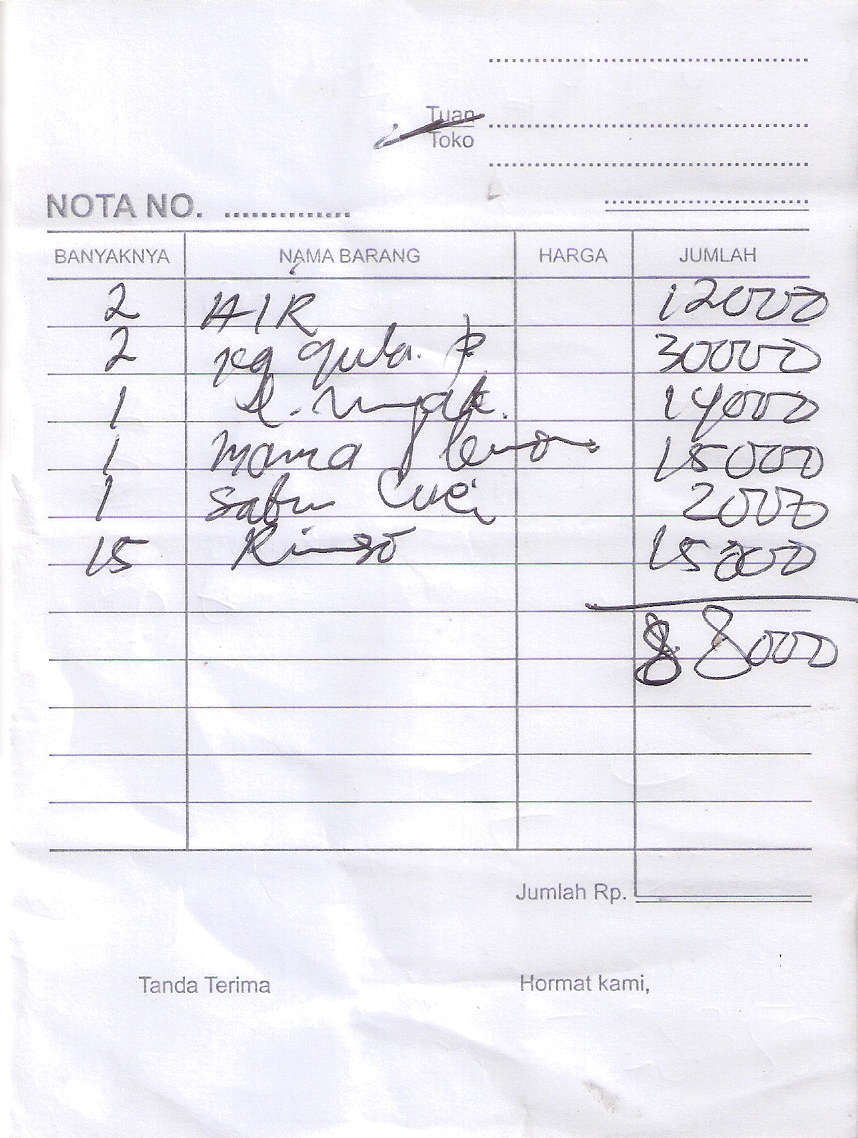 Tuan
Toko
NOTA NO. ...............
BANYAKNYA NAMA BARANG HARGA JUMLAH
2 AIR 12000
2 kg gula. P 30000
1 14000
1 mama lemon 15000
1 sabun Cuci 2000
15 Rinso 15000
88000
Jumlah Rp.
Tanda Terima Hormat kami,